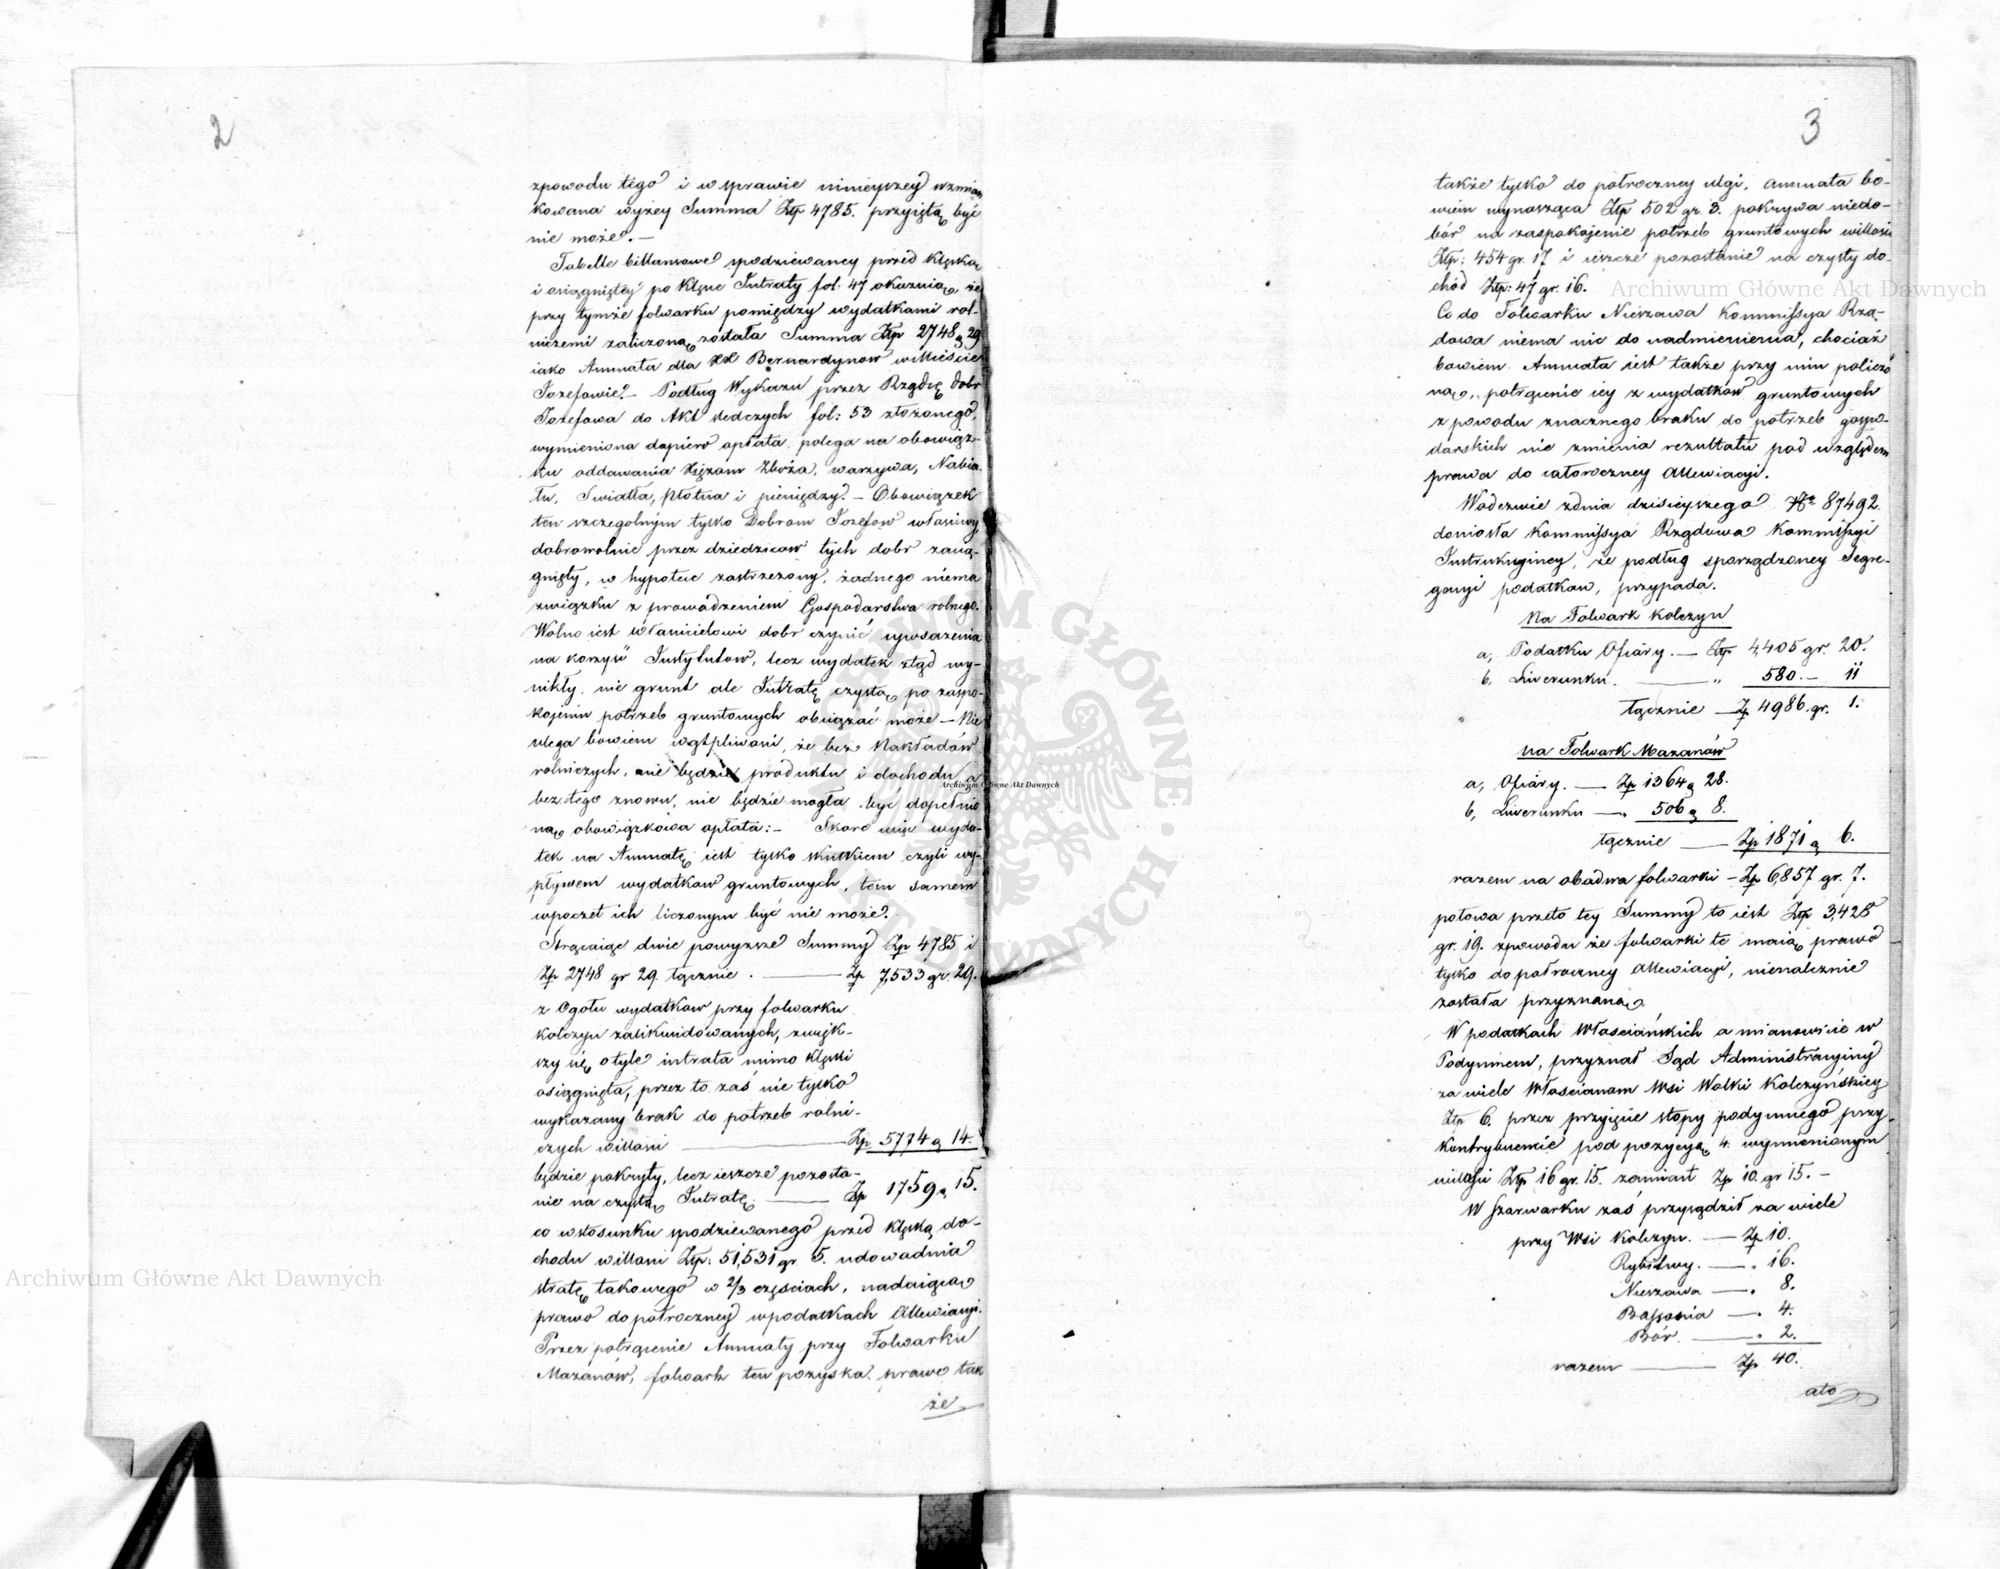 2
zpowodu tego i w sprawie ninieyszey wzmian
kowana wyżey Summa Złp 4785. przyiętą być
nie może. —
Tabelle billansowe spodziewaney przed klęską
i osiągniętey po klęsce Intraty fol. 47 okazuią, że
przy tymże folwarku pomiędzy wydatkami rol-
niczemi zaliczoną została Summa Złp 2748 g 29
iako Annuata dla XX Bernardynow w Mieście
Jozefowie. — Podług Wykazu przez Rządcę dobr
Jozefowa do Akt śledczych fol: 53 złożonego,
wymieniona dopiero opłata polega na obowiąz-
ku oddawania Xięzom Zboża, warzywa, Nabia
łu, Swiatła, płotna i pieniędzy. — Obowiązek
ten szczegolnym tylko Dobrom Jozefow właściwy
dobrowolnie przez dziedzicow tych dobr zacią-
gnięty, w hypotece zastrzeżony, żadnego niema
związku z prowadzeniem Gospodarstwa rolnego.
Wolno iest właścicielowi dobr czynić uposażenia
na korzyść Instytutow, lecz wydatek ztąd wy-
nikły, nie grunt ale Intratę czystą po zaspo-
kojeniu potrzeb gruntowych obciązać może — Nie
ulega bowiem wątpliwości, że bez Nakładów
rolniczych, nie będzie produktu i dochodu, a
bez tego znowu, nie będzie mogła być dopełnio
ną obowiązkowa opłata: — Skoro więc wyda-
tek na Annuatę iest tylko skutkiem czyli wy-
pływem wydatkow gruntowych, tem samem
wpoczet ich liczonym być nie może.
Strącaiąc dwie powyższe Summy Złp 4785 i
Złp 2748 gr 29. łącznie . — Zp 7,533 gr. 29.
z Ogołu wydatkow przy folwarku
Kolczyn zalikwidowanych, zwięk-
szy się o tyle intrata mimo klęski
osiągnięta, przez to zaś nie tylko
wykazany brak do potrzeb rolni-
czych w ilości — Zp. 5774 g 14.
będzie pokryty, lecz ieszcze pozosta-
nie na czystą Intratę — Zp 1759 g 15.
co w stosunku spodziewanego przed klęską do-
chodu w ilości Złp: 51,531 gr 5. udowadnia
stratę takowego w 2/3 częściach, nadaiącą
prawo do połroczney w podatkach Allewiacyi.
Przez potrącenie Annuaty przy Folwarku
Mazanów, folwark ten pozyska prawo tak
że
3
także tylko do połroczney ulgi, Annuata bo-
wiem wynosząca Złp 502 gr. 3. pokrywa niedo-
bór na zaspokojenie potrzeb gruntowych w ilości
Złp: 454 gr. 17 i ieszcze pozostanie na czysty do-
chód Złp: 47 gr. 16.
Co do Folwarku Nieszawa Kommissya Rzą-
dowa niema nic do nadmienienia, chociaż
bowiem Annuata iest także przy nim policzo
ną, potrącenie iey z wydatkow gruntowych
z powodu znacznego braku do potrzeb gospo-
darskich nie zmienia rezultatu pod względem
prawa do całoroczney Allewiacyi.
W odezwie zdnia dzisieyszego No 87492.
doniosła Kommissya Rządowa Kommissyi
Instrukcyiney, że podług sporządzoney Segre-
gacyi podatkow, przypada.
Na Folwark Kolczyn
a, Podatku Ofiary. — Złp 4,405 gr. 20.
b, Liwerunku. — „ 580. — 11
łącznie — Zp 4986 gr. 1.
na Folwark Mazanów
a, Ofiary. — Zp 1364 g 28.
b, Liwerunku — „ 506 g 8.
łącznie — Zp 1871 g 6.
razem na obadwa folwarki — Zp 6,857 gr. 7.
połowa przeto tey Summy to iest Złp 3,428
gr. 19. zpowodu że folwarki te maią prawo
tylko do połroczney Allewiacyi, nienależnie
została przyznaną.
W podatkach Włościańskich a mianowicie w
Podymnem, przyznał Sąd Administracyiny
za wiele Włościanom Wsi Wolki Kolczyńskiey
Złp 6. przez przyięcie stopy podymnego przy
Kontrybuencie pod pozycyą 4. wymienionym
w ilości Złp 16 gr. 15. zamiast Zp 10. gr 15. —
W Szarwarku zaś przysądził za wiele
przy Wsi Kolczyn. — Zp 10.
Rybitwy. — „ 16.
Nieszawa — „ 8.
Bassonia — „ 4.
Bór. — „ 2.
razem — Zp 40.
ato
Archiwum Główne Akt Dawnych
Archiwum Główne Akt Dawnych
Archiwum Główne Akt Dawnych
ARCHIWUM GŁÓWNE AKT DAWNYCH